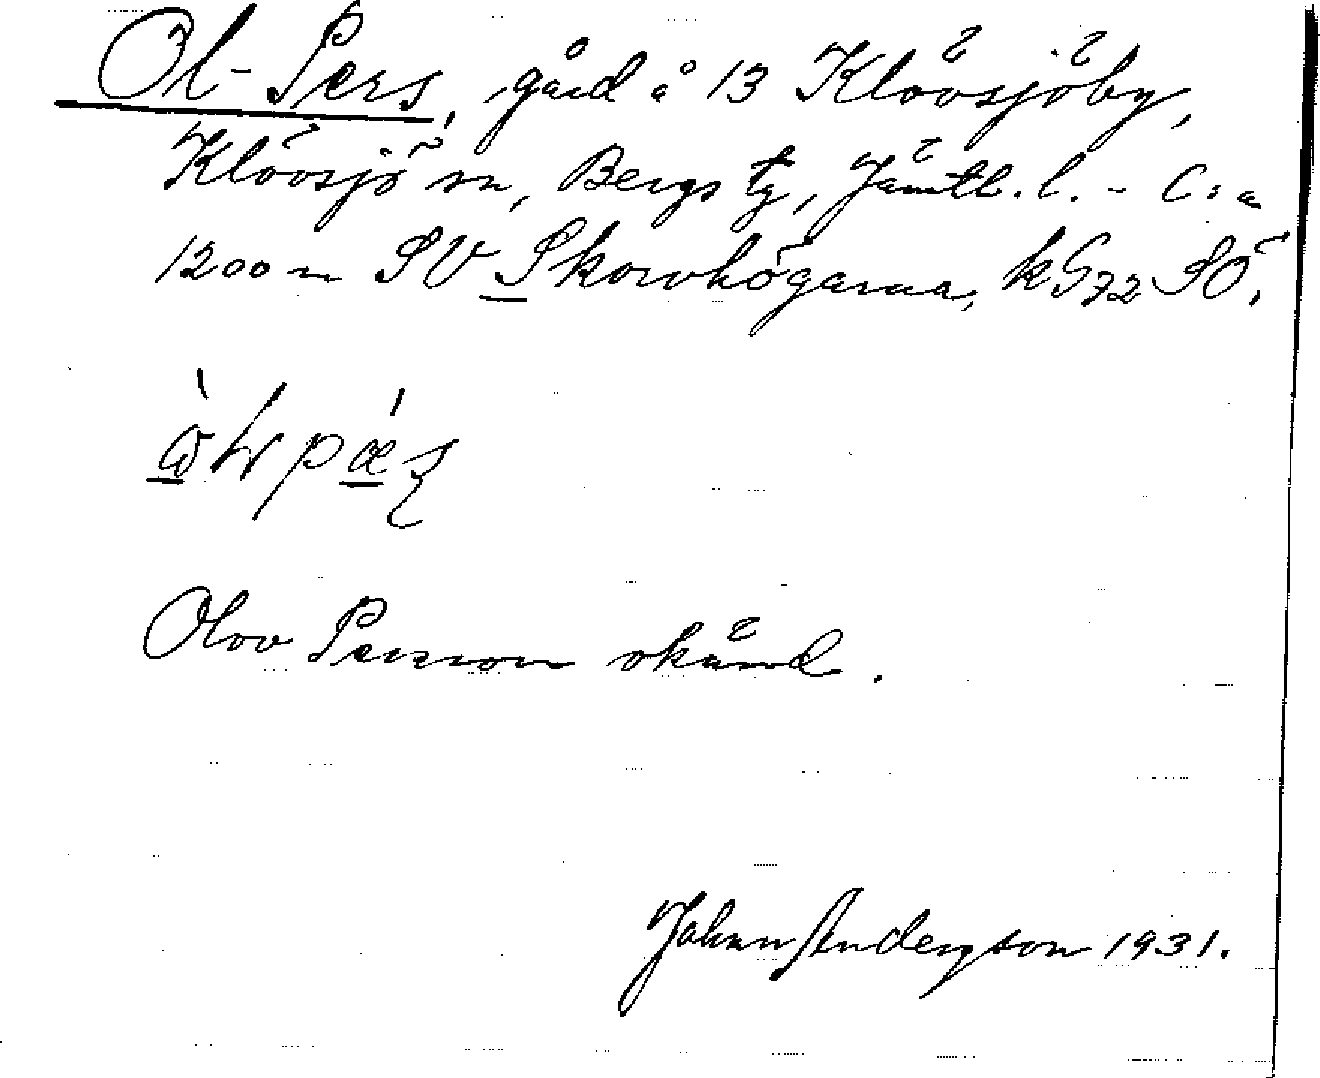 Ol-Pers, gård å 13 Klövsjöby,
Klövsjö sn, Bergs tg, Jämtl. l. - C:a
1200 m SV Skorvhögarna, kG72 SÖ.
Olov Persson okänd.
Johan Anderzson 1931.